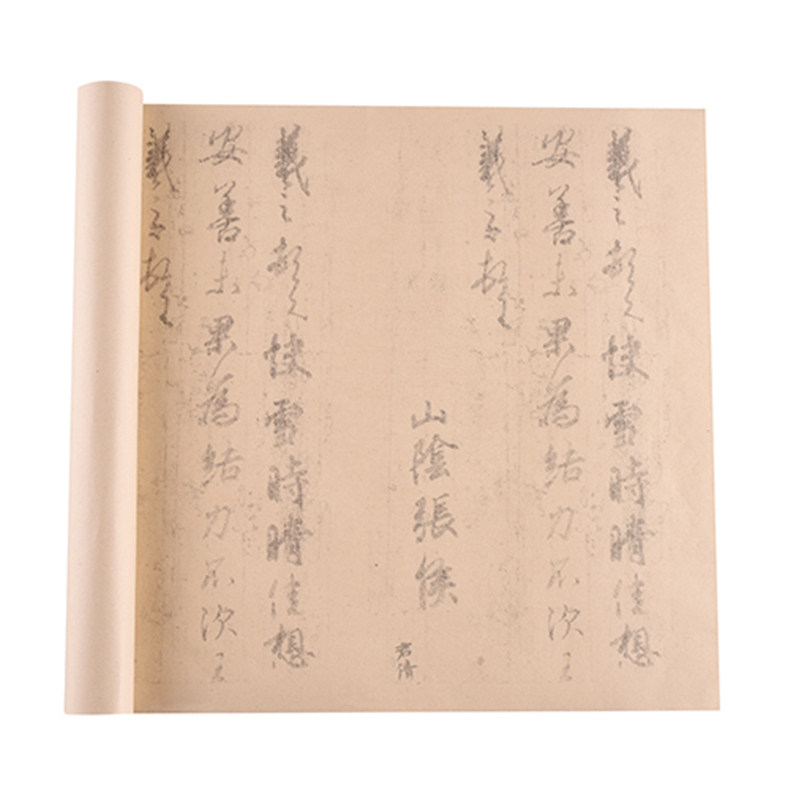 羲之頓首快雪時晴佳想
安善未果為結力不次王
羲之頓首
山陰張侯
君倩
羲之頓首快雪時晴佳想
安善未果為結力不次王
羲之頓首